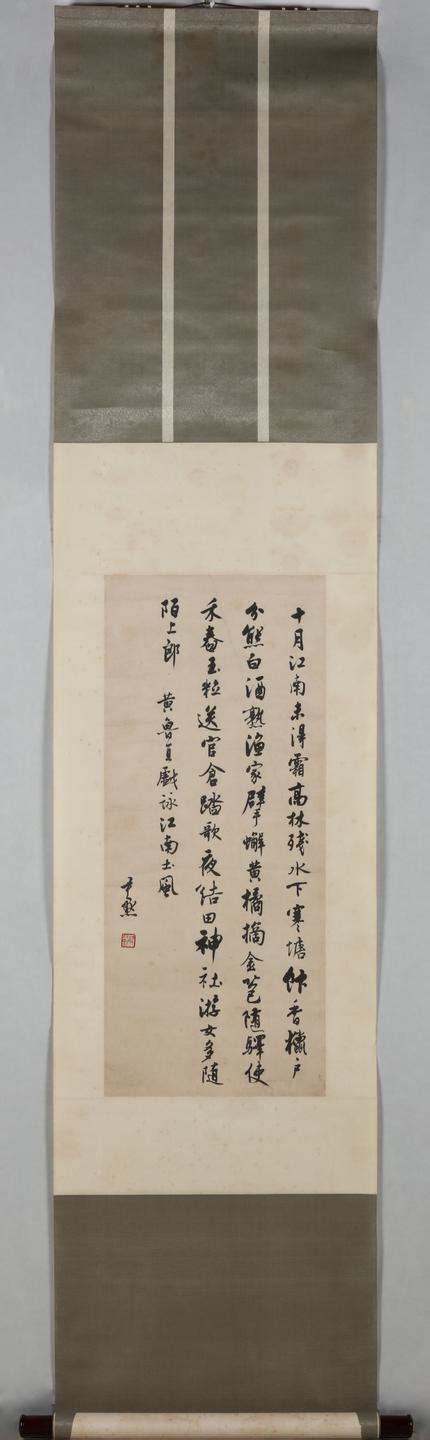 十月江南未得霜高林殘水下寒塘飰香獵户
分熊白酒熟漁家擘蠏黄橘摘金苞隨驛使
禾舂玉粒送官倉踏歌夜結田神社游女多随
陌上郎 黄魯直戲詠江南土風
尹默